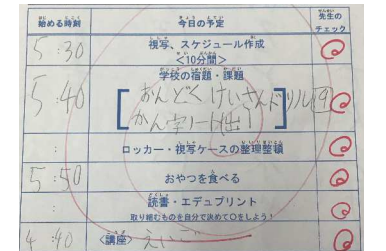 始める時刻 今日の予定 先生のチェック
5:30 視写、スケジュール作成
<10分間>
学校の宿題・課題
5:40 おんどく けいさんドリル 19
かん字ノート 出!
: ロッカー・視写ケースの整理整頓
5:50 おやつを食べる
: 読書・エデュプリント
取り組むものを自分で決めて○をしよう!
4:40 <講座> えいご